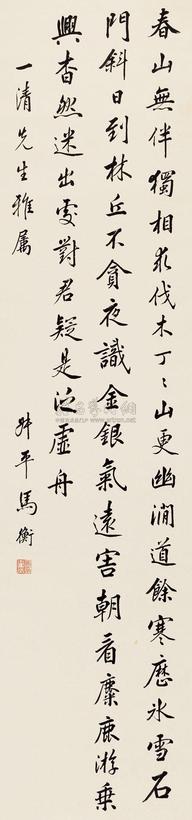 春山無伴獨相求伐木丁〻山更幽澗道餘寒歷氷雪石
門斜日到林丘不貪夜識金銀氣遠害朝看麋鹿游乗
興杳然迷出處對君疑是泛虛舟
一清先生雅屬
叔平馬衡